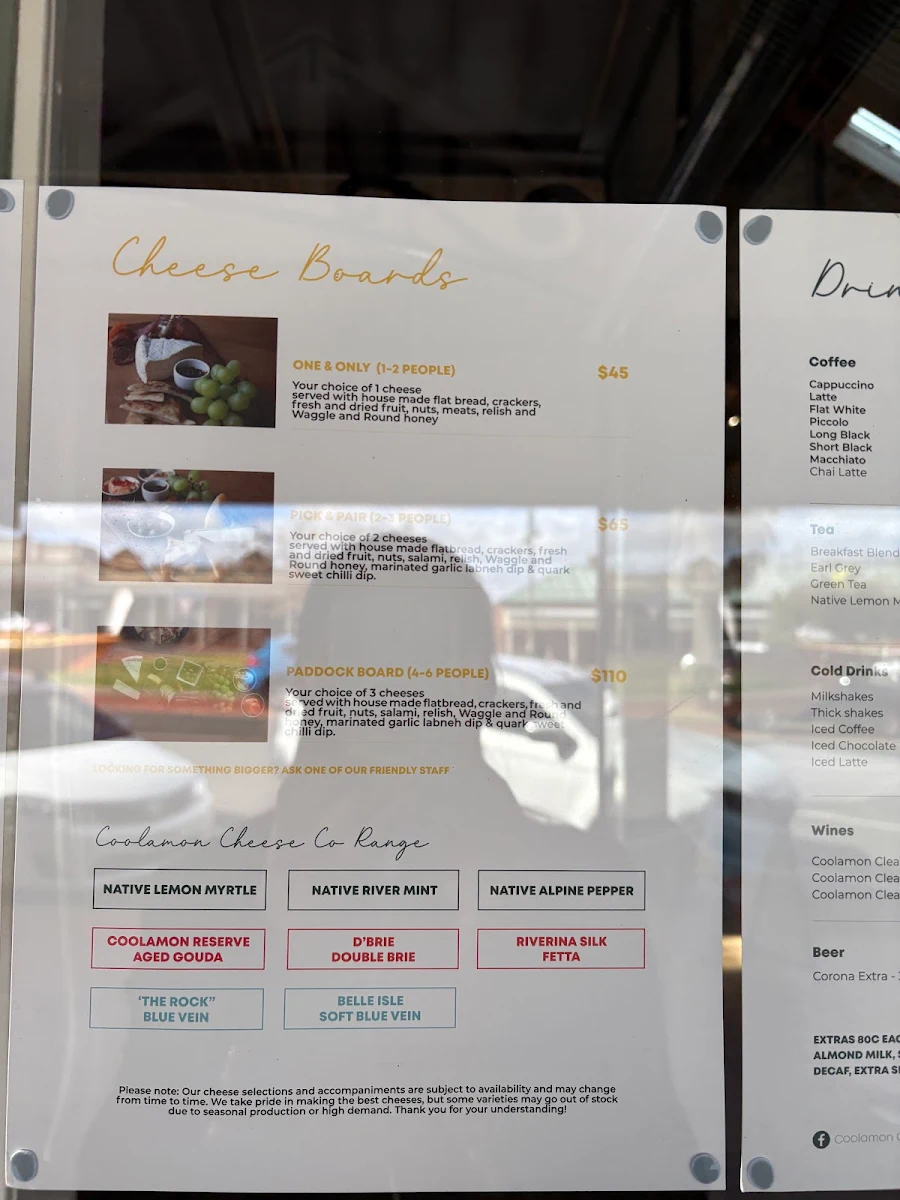 Cheese Boards
ONE & ONLY (1-2 PEOPLE) $45
Your choice of 1 cheese
served with house made flat bread, crackers,
fresh and dried fruit, nuts, meats, relish and
Waggle and Round honey
PICK & PAIR (2-3 PEOPLE) $65
Your choice of 2 cheeses
served with house made flatbread, crackers, fresh
and dried fruit, nuts, salami, relish, Waggle and
Round honey, marinated garlic labneh dip & quark
sweet chilli dip.
PADDOCK BOARD (4-6 PEOPLE) $110
Your choice of 3 cheeses
served with house made flatbread, crackers, fresh and
dried fruit, nuts, salami, relish, Waggle and Round
honey, marinated garlic labneh dip & quark sweet
chilli dip.
LOOKING FOR SOMETHING BIGGER? ASK ONE OF OUR FRIENDLY STAFF
Coolamon Cheese Co Range
NATIVE LEMON MYRTLE
NATIVE RIVER MINT
NATIVE ALPINE PEPPER
COOLAMON RESERVE
AGED GOUDA
D'BRIE
DOUBLE BRIE
RIVERINA SILK
FETTA
'THE ROCK"
BLUE VEIN
BELLE ISLE
SOFT BLUE VEIN
Please note: Our cheese selections and accompaniments are subject to availability and may change
from time to time. We take pride in making the best cheeses, but some varieties may go out of stock
due to seasonal production or high demand. Thank you for your understanding!
Coffee
Cappuccino
Latte
Flat White
Piccolo
Long Black
Short Black
Macchiato
Chai Latte
Tea
Breakfast Blend
Earl Grey
Green Tea
Native Lemon
Cold Drinks
Milkshakes
Thick shakes
Iced Coffee
Iced Chocolate
Iced Latte
Wines
Coolamon
Coolamon
Coolamon
Beer
Corona Extra -
EXTRAS 80C
ALMOND MILK,
DECAF, EXTRA
Coolamon